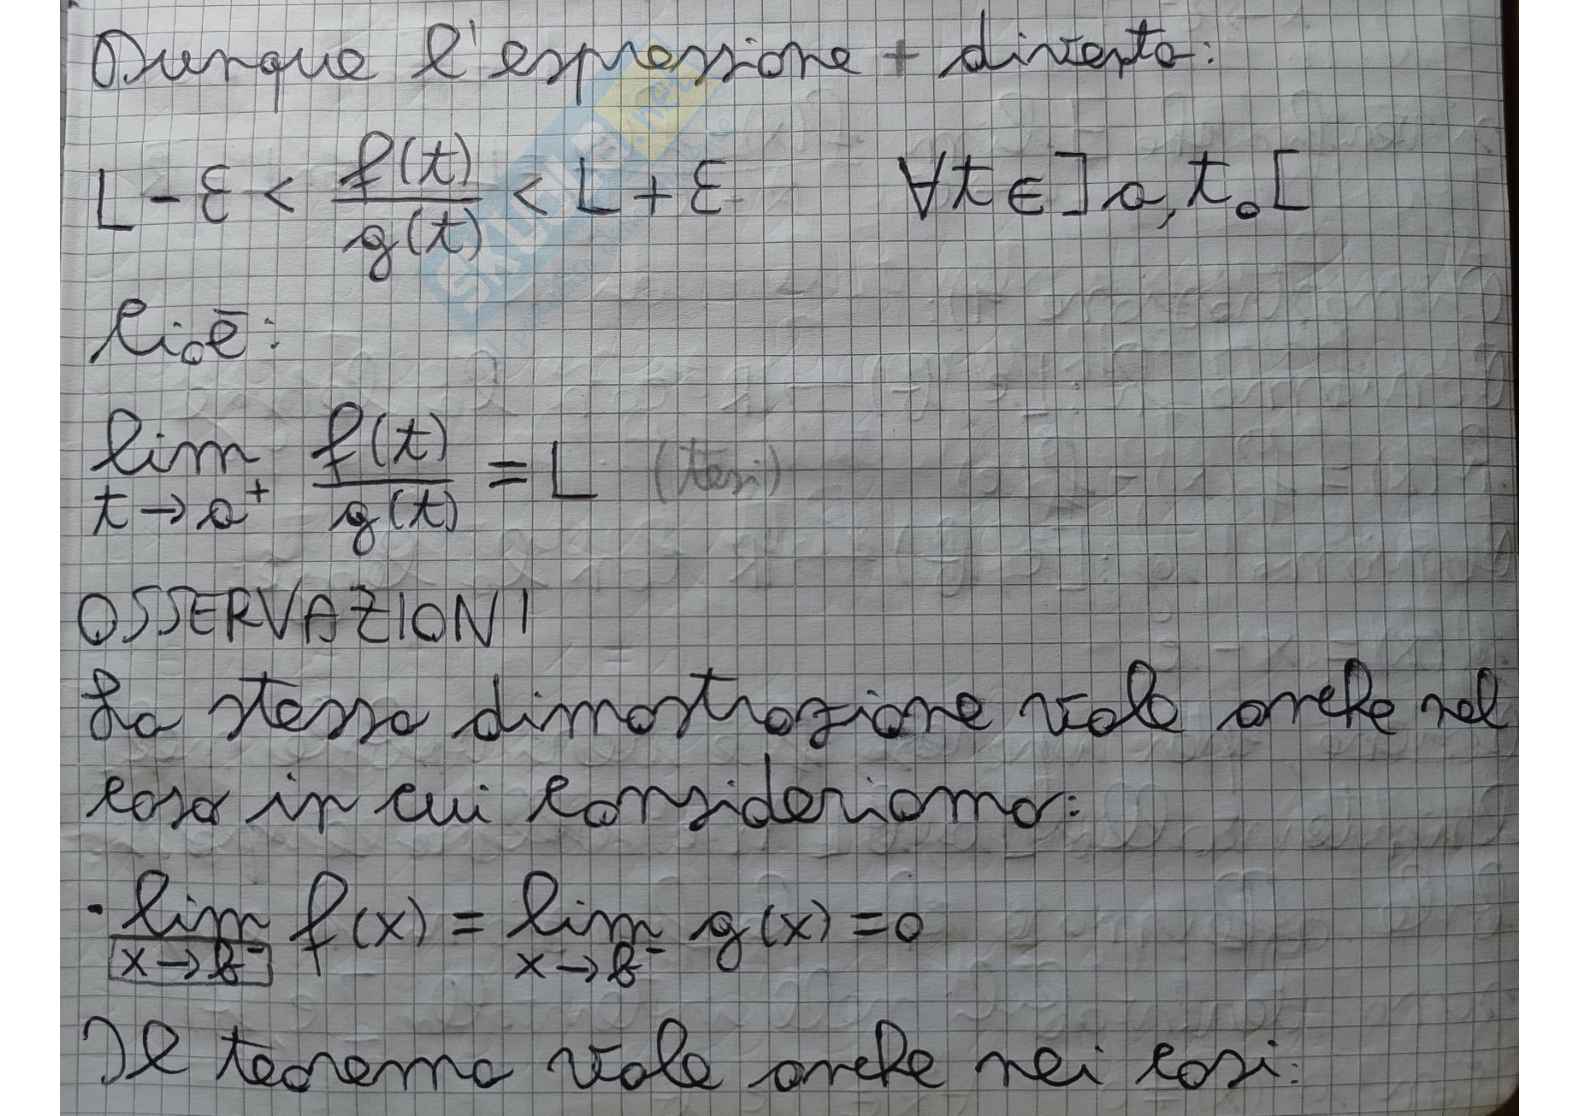 Dunque l'espressione + diventa:
L-ε < f(t)/g(t) < L+ε ∀t∈]a,t₀[
Cioè:
lim t→a⁺ f(t)/g(t) = L (tesi)
OSSERVAZIONI
La stessa dimostrazione vale anche nel
caso in cui consideriamo:
· lim x→b⁻ f(x) = lim x→b⁻ g(x) = 0
Il teorema vale anche nei casi: